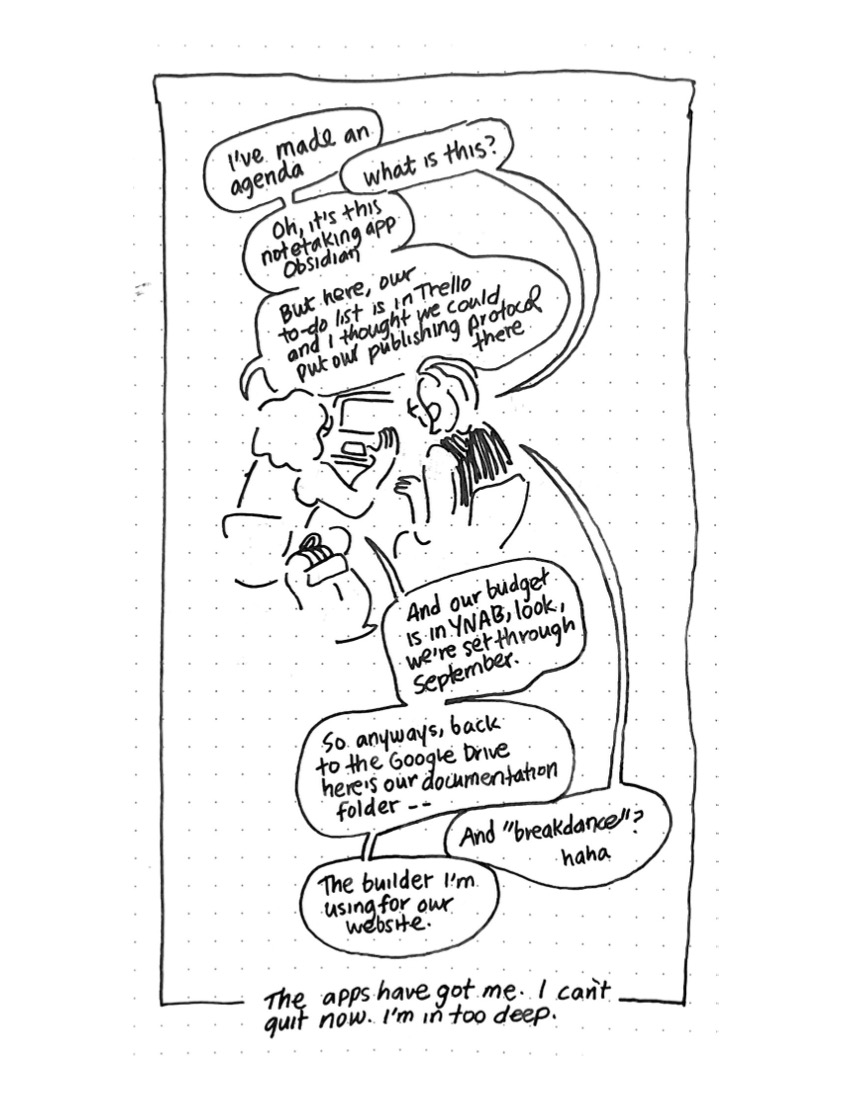 I've made an
agenda
what is this?
Oh, it's this
notetaking app
Obsidian
But here, our
to-do list is in Trello
and I thought we could
put our publishing protocol
there
And our budget
is in YNAB, look,
we're set through
September.
So anyways, back
to the Google Drive
here's our documentation
folder --
And "breakdance"?
haha
The builder I'm
using for our
website.
The apps have got me. I can't
quit now. I'm in too deep.